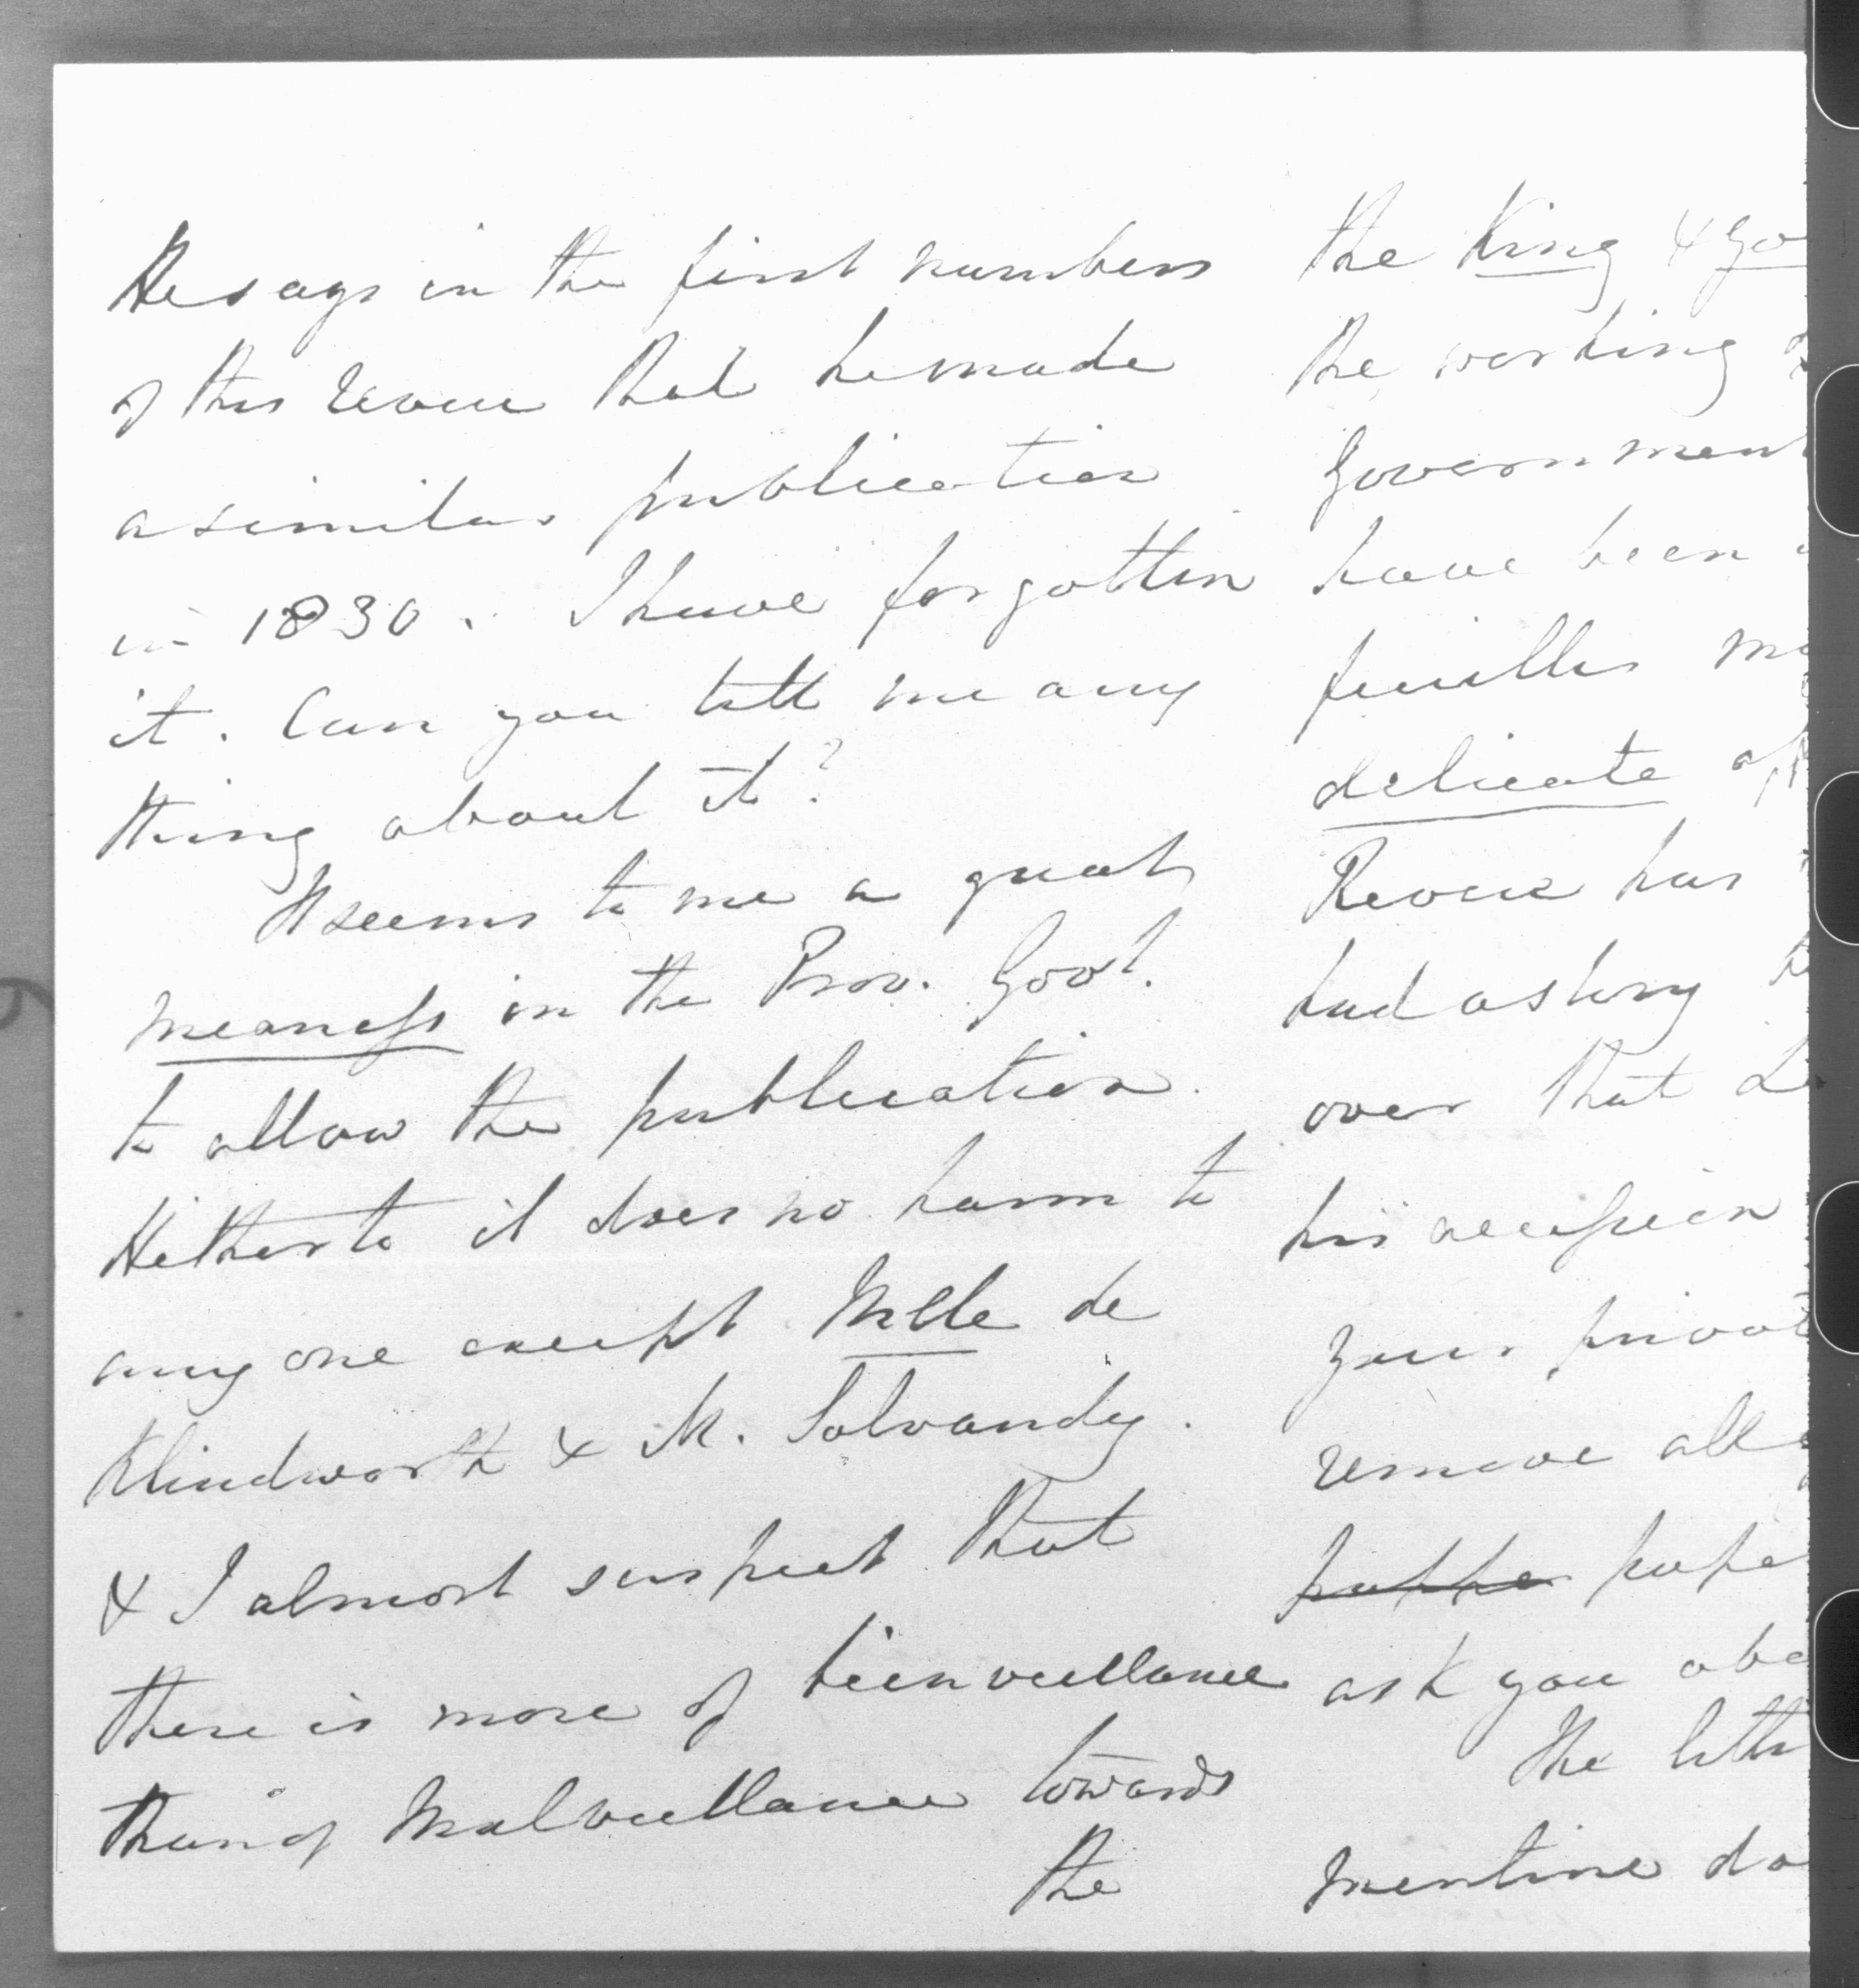 He says in the first numbers
of this Revue that he made
a similar publication
in 1830. I have forgotten
it. Can you tell me any
thing about it?
It seems to me a great
meaness in the Prov. Govt.
to allow the publication.
Hitherto it does no harm to
any one except Mlle de
Klindworth & M. Salvandy.
& I almost suspect that
there is more of bienveillance
than of Malveillance towards
the
the King & Go
the working
Government
have been
feuilles
delicate
Revue has
had as long
over that
his accession
your privat
remove all
pape
ask you abo
The lette
mentine do